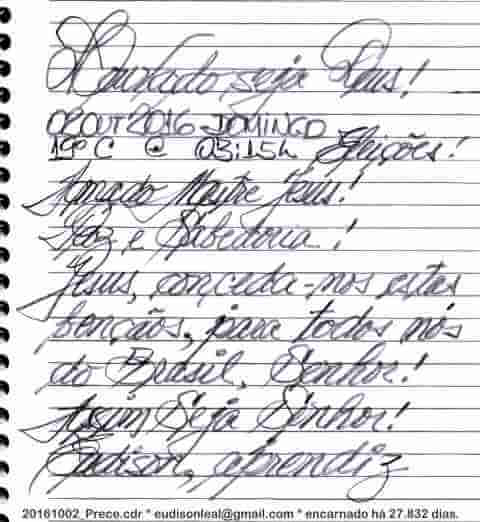 Louvado seja Deus!
02OUT2016 DOMINGO
19º C @ 03:15h Eleições!
Amado Mestre Jesus!
Paz e Sabedoria!
Jesus, conceda-nos estas
bençãos, para todos nós
do Brasil, Senhor!
Assim Seja Senhor!
Eudison, aprendiz
20161002_Prece.cdr * eudisonleal@gmail.com * encarnado há 27.832 dias.